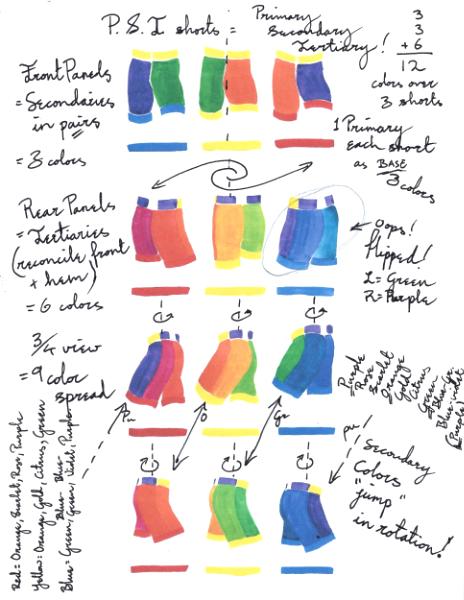 P. S. I shorts = Primary
Secondary
Tertiary!
3
3
+ 6
12
colors over
3 shorts
Front Panels
= Secondaires
in pairs
= 3 colors
1 Primary
each short
as BASE
3 colors
Rear Panels
= Tertiaries
(reconcile front
+ hem)
= 6 colors
Oops!
flipped!
L = Green
R = Purple
3/4 view
= 9 color
spread
Purple
Rose
Scarlet
Orange
Gold
Citrus
Green
Blue-Gr.
Blue-violet
(Purple)
Pu
O
Gr
pu
Secondary
Colors
"jump"
in rotation!
Red = Orange, Scarlet, Rose, Purple
Yellow = Orange, Gold, Citrus, Green
Blue- Blue-
Blue = Green, Green, Violet, Purple